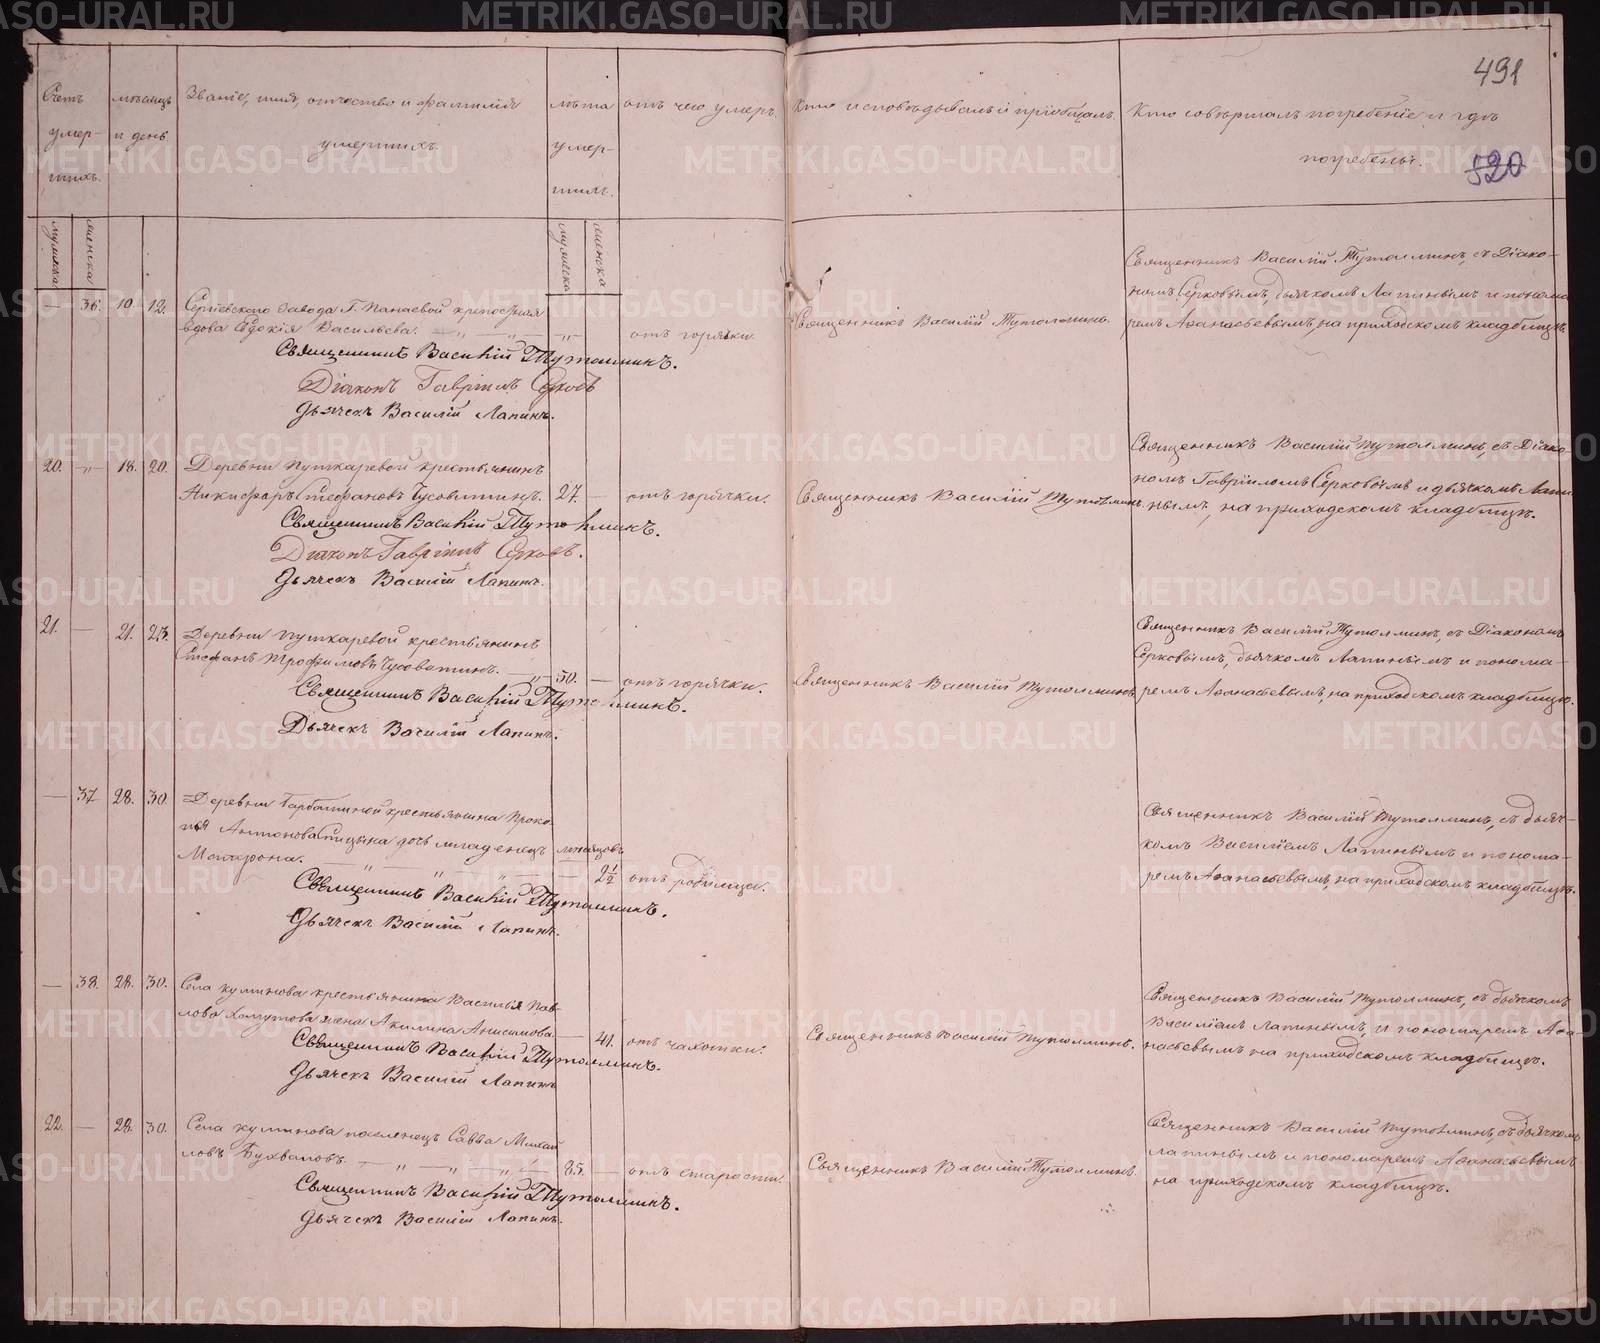 491
520
Счетъ умер-шихъ.
мѣсяцъ и день
Званіе, имя, отчество и фамилія умершихъ.
лѣта умер-шихъ.
отъ чего умеръ.
Кто исповѣдывалъ и пріобщалъ.
Кто совершалъ погребеніе и гдѣ погребены.
мужеска
женска
мужеска
женска
— 36. 10 12.
Сергіевскаго завода Г. крѣпостная
вдова Евдокія Васильева.
отъ горячки.
Священникъ Василій Тутолминъ.
Священникъ Василій Тутолминъ, съ Діако-
номъ Серковымъ, дьячкомъ Лапинымъ и понома
ремъ Аѳанасьевымъ, на приходскомъ кладбищѣ.
Священникъ Василій Тутолминъ.
Діаконъ Гавріилъ Серковъ
Дьячекъ Василій Лапинъ.
20. — 18. 20.
Деревни Пушкаревой крестьянинъ
Никифоръ Стефановъ Чусовитинъ. 27. —
отъ горячки.
Священникъ Василій Тутолминъ.
Священникъ Василій Тутолминъ, съ Діако-
номъ Гавріиломъ Серковымъ и дьячкомъ Лапи
нымъ, на приходскомъ кладбищѣ.
Священникъ Василій Тутолминъ.
Діаконъ Гавріилъ Серковъ.
Дьячекъ Василій Лапинъ.
21. — 21. 23.
Деревни Пушкаревой крестьянинъ
Стефанъ Трофимовъ Чусовитинъ. 50. —
отъ горячки.
Священникъ Василій Тутолминъ
Священникъ Василій Тутолминъ, съ Діакономъ
Серковымъ, дьячкомъ Лапинымъ и понома-
ремъ Аѳанасьевымъ, на приходскомъ кладбищѣ.
Священникъ Василій Тутолминъ.
Дьячекъ Василій Лапинъ.
— 37 28. 30.
Деревни крестьянина Проко-
пія Антонова дочь младенецъ мѣсяцовъ
Матрона. — 2 1/2
отъ родимца.
Священникъ Василій Тутолминъ, съ дьяч-
комъ Василіемъ Лапинымъ и понома-
ремъ Аѳанасьевымъ, на приходскомъ кладбищѣ.
Священникъ Василій Тутолминъ.
Дьячекъ Василій Лапинъ.
— 38. 28. 30.
Села Куминова крестьянина Василья Пав-
лова Хомутова жена Акилина Анисимова. — 41.
отъ чахотки.
Священникъ Василій Тутолминъ.
Священникъ Василій Тутолминъ, съ дьячкомъ
Василіемъ Лапинымъ, и пономаремъ Аѳа-
насьевымъ на приходскомъ кладбищѣ.
Священникъ Василій Тутолминъ.
Дьячекъ Василій Лапинъ
22. — 28. 30.
Села Куминова поселенецъ Савва Михаи
ловъ Бухваловъ. 85. —
отъ старости.
Священникъ Василій Тутолминъ
Священникъ Василій Тутолминъ, съ дьячкомъ
Лапинымъ и пономаремъ Аѳанасьевымъ
на приходскомъ кладбищѣ.
Священникъ Василій Тутолминъ.
Дьячекъ Василій Лапинъ.
METRIKI.GASO-URAL.RU